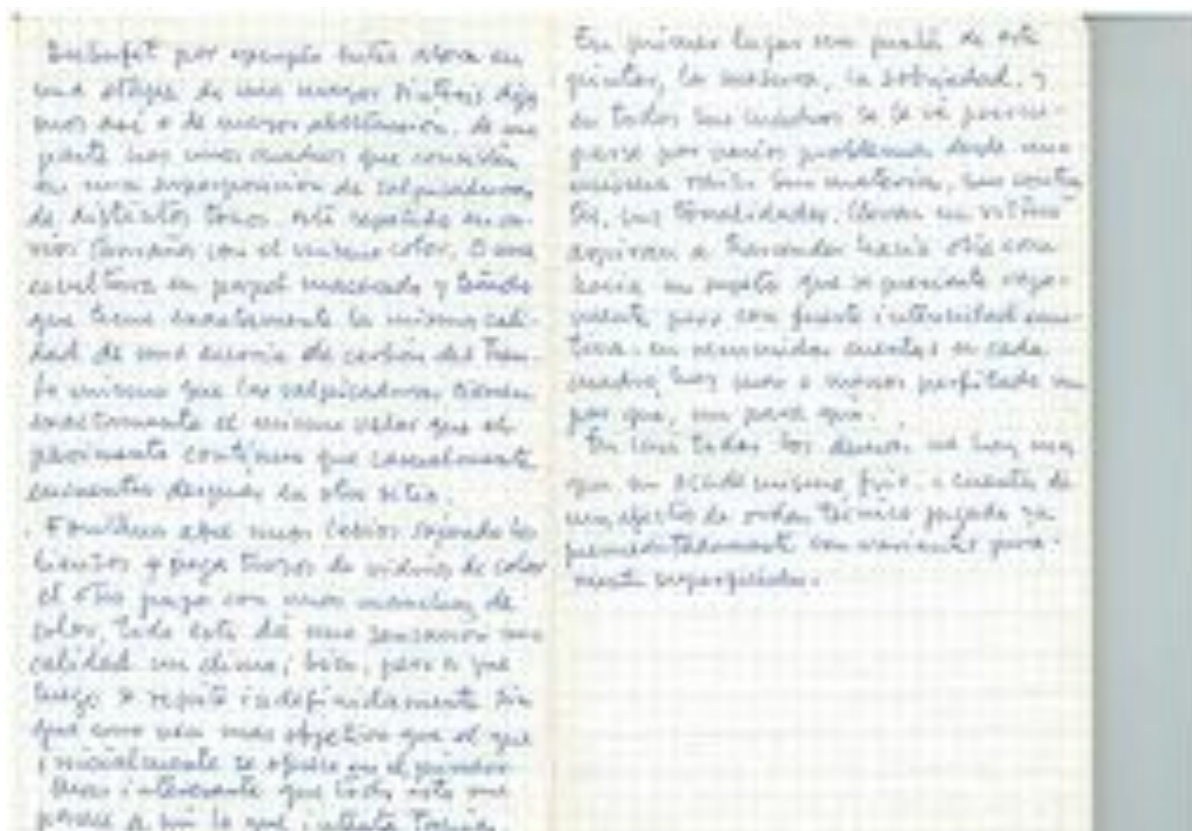 Dubufet por ejemplo entra ahora en
una etapa de una mayor síntesis diga
mos así o de mayor abstracción. de una
parte hay unos cuadros que consisten
en una superposición de salpicaduras,
de distintos tonos. esto repetido en va-
rios tamaños con el mismo color. O una
escultura en papel macerado y teñido
que tiene exactamente la misma cali-
dad de una escoria de carbón del tren.
Lo mismo que las salpicaduras tienen
exactamente el mismo valor que el
pavimento continuo que casualmente
encuentras después en otro sitio.
los
lienzos y pega trozos de vidrios de color
el otro juega con unas manchas de
color, todo esto da una sensación una
calidad un clima, bien, pero a que
luego se repite indefinidamente sin
que uno vea mas objetivo que el que
inicialmente se
Mas interesante que todo esto me
parece a mi lo que intenta
En primer lugar me gusta de este
pintor, la mesura, la sobriedad, y
en todos sus cuadros se le ve preocu-
parse por varios problemas desde una
misma raíz. Sus materias, sus
sus tonalidades, llevan un ritmo
aspiran a trascender hacia
hacia un sujeto que se presiente
pero con fuerte intensidad
en resumidas cuentas en cada
cuadro hay mas o menos perfilado un
por que, un para que.
En casi todos los demas no hay mas
que un frio, a cuenta de
un efecto de orden técnico jugado ya
premeditadamente con variantes pura-
mente superficiales.